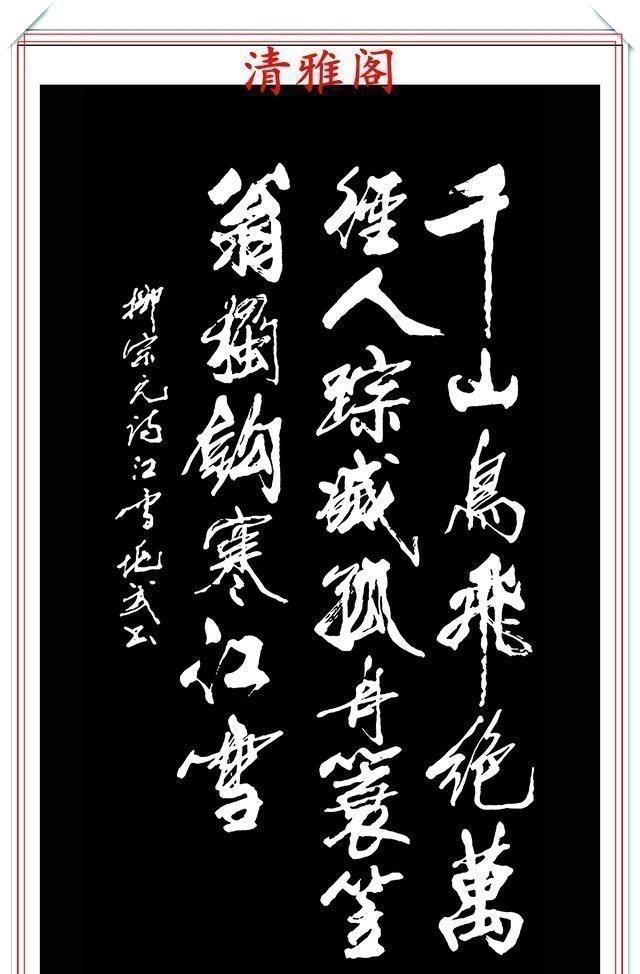 清雅阁
千山鳥飛絶萬
徑人踪滅孤舟簑笠
翁獨釣寒江雪
柳宗元诗江雪武书